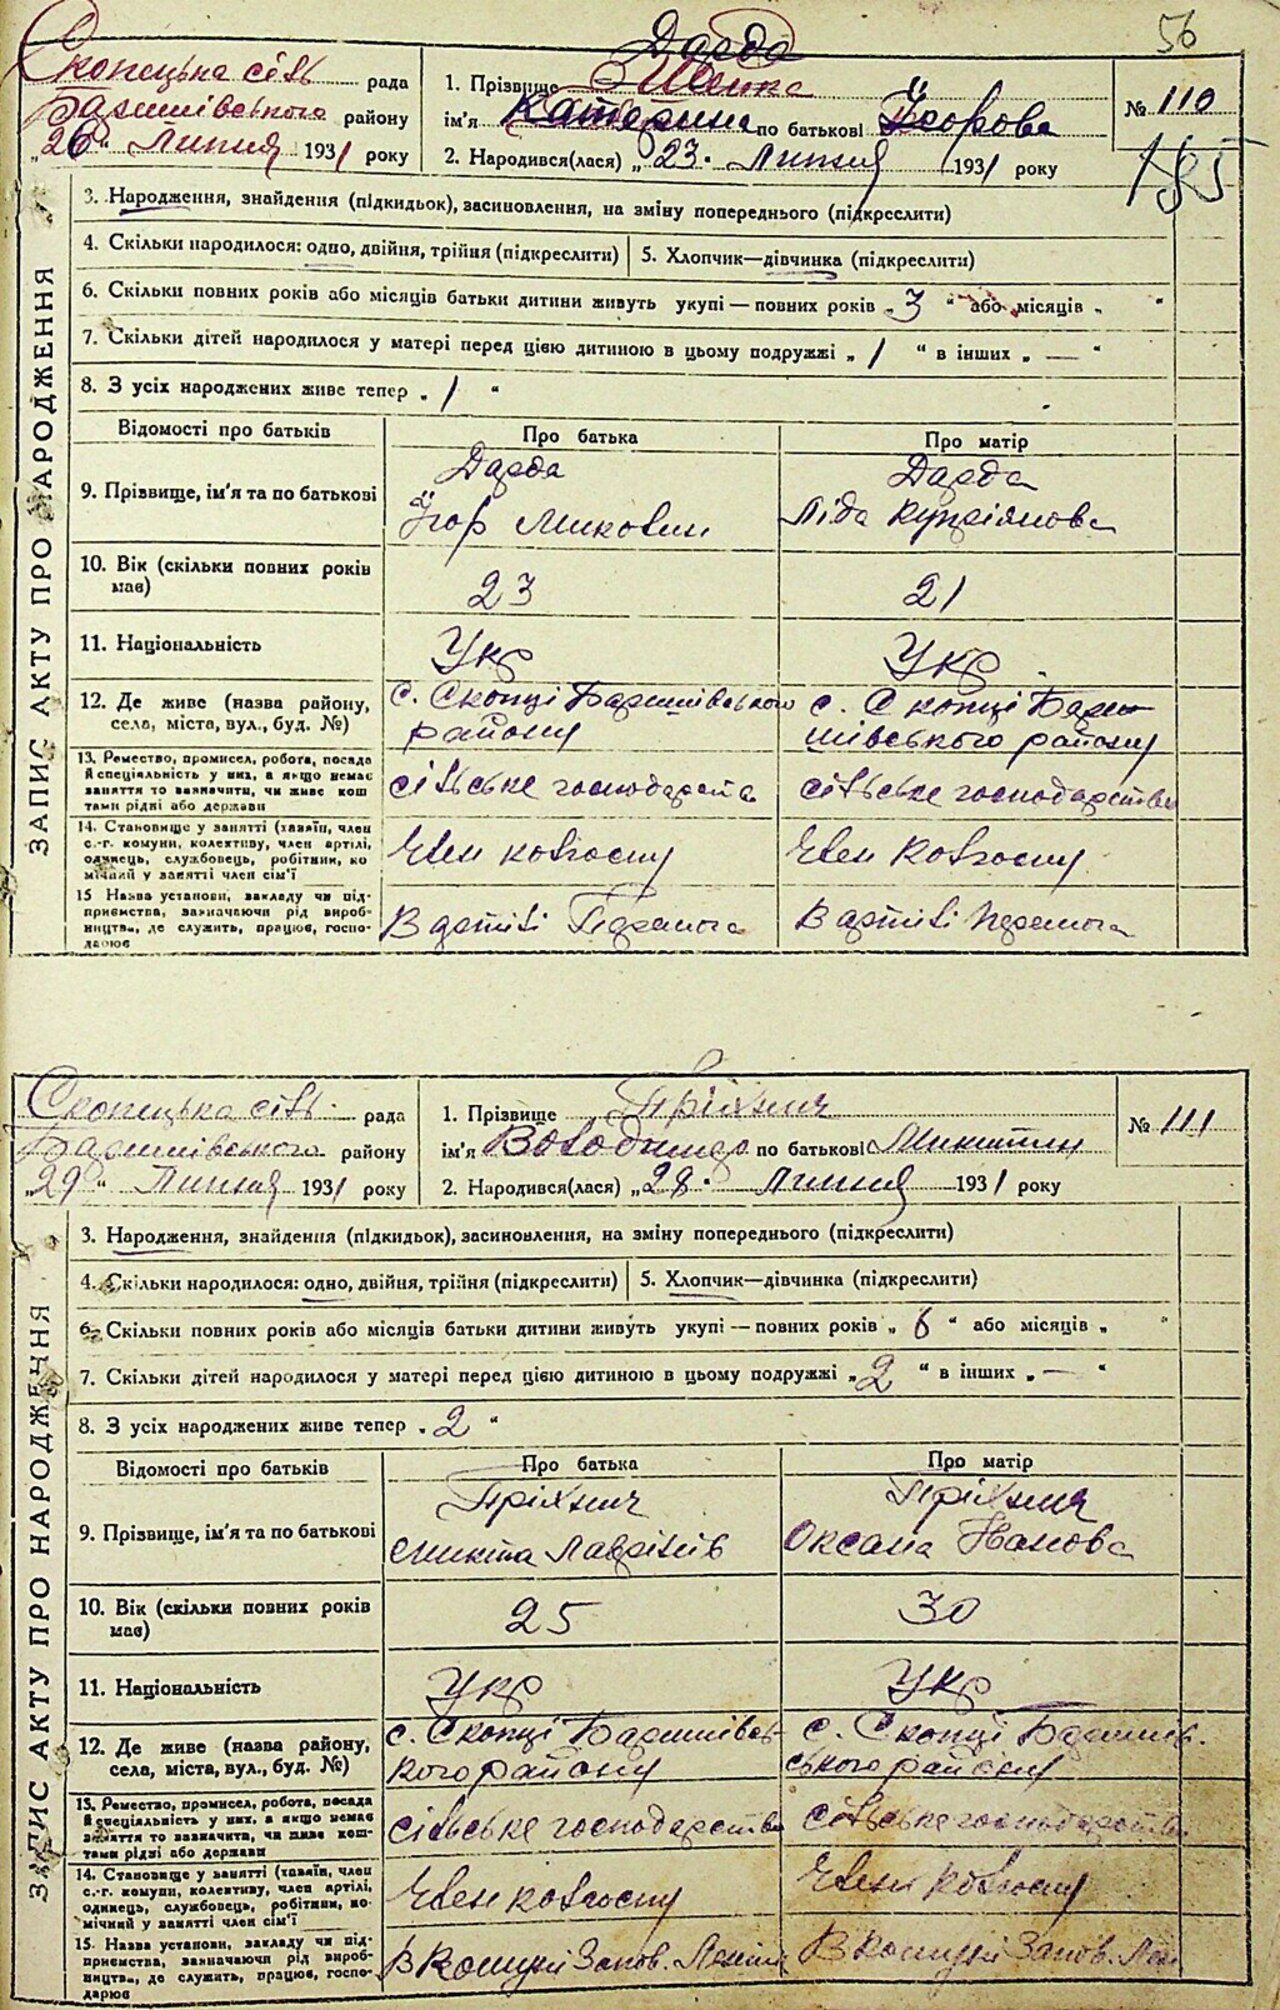 56
Скопецька сіль рада
Баришівського району
„26“ Липня 1931 року
Дарда
1. Прізвище
ім'я Катерина по батькові Їгорова
2. Народився(лася) „23. Липня 1931 року
№ 110
185
ЗАПИС АКТУ ПРО НАРОДЖЕННЯ
3. Народження, знайдення (підкидьок), засиновлення, на зміну попереднього (підкреслити)
4. Скільки народилося: одно, двійня, трійня (підкреслити)
5. Хлопчик—дівчинка (підкреслити)
6. Скільки повних років або місяців батьки дитини живуть укупі — повних років „3“ або місяців „ “
7. Скільки дітей народилося у матері перед цією дитиною в цьому подружжі „1“ в інших „—“
8. З усіх народжених живе тепер „1“
Відомості про батьків
Про батька
Про матір
9. Прізвище, ім'я та по батькові
Дарда
Їгор Микович
Дарда
Ліда Купріянова
10. Вік (скільки повних років
має)
23
21
11. Національність
Укр
Укр
12. Де живе (назва району,
села, міста, вул., буд. №)
с. Скопці Баришівського
району
с. Скопці Бари-
шівського району
13. Ремество, промисел, робота, посада
й спеціяльність у них, а якщо немає
заняття то зазначити, чи живе кош
тами рідні або держави
сільське господарство
сільське господарство
14. Становище у занятті (хазяїн, член
с.-г. комуни, колективу, член артілі,
одинець, службовець, робітник, ко
мічний у занятті член сім'ї
Член колгоспу
Член колгоспу
15 Назва установи, закладу чи під-
приємства, зазначаючи рід вироб-
ництва, де служить, працює, госпо-
дарює
В артілі Перемога
В артілі Перемога
Скопецька сіль. рада
Баришівського району
„29“ Липня 1931 року
1. Прізвище Пріхнич
ім'я Володимир по батькові Микитич
2. Народився(лася) „28. Липня 1931 року
№ 111
ЗАПИС АКТУ ПРО НАРОДЖЕННЯ
3. Народження, знайдення (підкидьок), засиновлення, на зміну попереднього (підкреслити)
4. Скільки народилося: одно, двійня, трійня (підкреслити)
5. Хлопчик—дівчинка (підкреслити)
6. Скільки повних років або місяців батьки дитини живуть укупі — повних років „6“ або місяців „ “
7. Скільки дітей народилося у матері перед цією дитиною в цьому подружжі „2“ в інших „—“
8. З усіх народжених живе тепер „2“
Відомості про батьків
Про батька
Про матір
9. Прізвище, ім'я та по батькові
Пріхнич
Микита Лаврінів
Пріхнич
Оксана Іванова
10. Вік (скільки повних років
має)
25
30
11. Національність
Укр
Укр
12. Де живе (назва району,
села, міста, вул., буд. №)
с. Скопці Баришівсь-
кого району
с. Скопці Баришів.
ського району
13. Ремество, промисел, робота, посада
й спеціяльність у них, а якщо немає
заняття то зазначити, чи живе кош-
тами рідні або держави
сільське господарство
сільське господарство
14. Становище у занятті (хазяїн, член
с.-г. комуни, колективу, член артілі,
одинець, службовець, робітник, по-
мічний у занятті член сім'ї
Член колгоспу
Член колгоспу
15. Назва установи, закладу чи під-
приємства, зазначаючи рід вироб-
ництва, де служить, працює, госпо-
дарює
В комуні Запов. Леніна
В комуні Запов. Лен